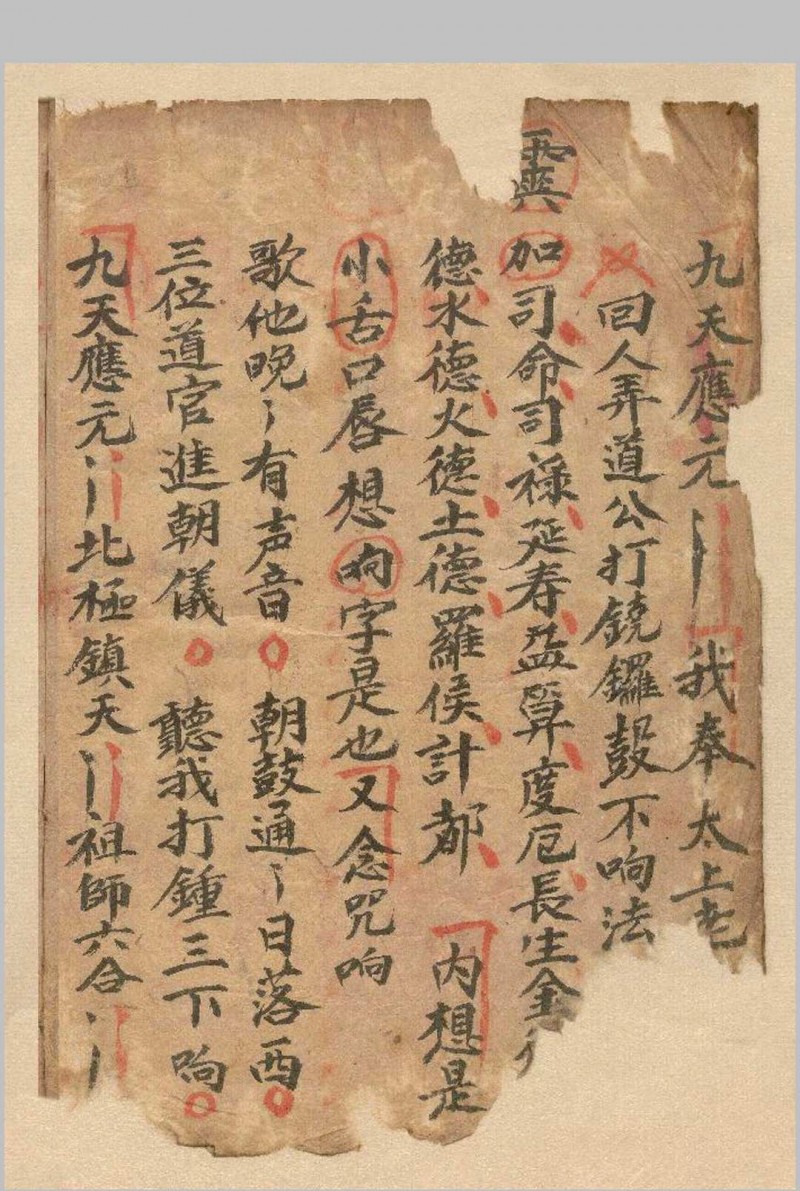 九天應元 我奉太上老
回人弄道公打鐃鑼鼓不响法
加司命司祿延寿益算度厄長生金
德水德火德土德羅侯計都 内想是
小舌口唇想响字是也又念咒响
歌他晚〻有声音 朝鼓通〻日落酉
三位道官進朝儀 聽我打鍾三下响
九天應元〻丨北極鎮天〻丨祖師六合〻丨